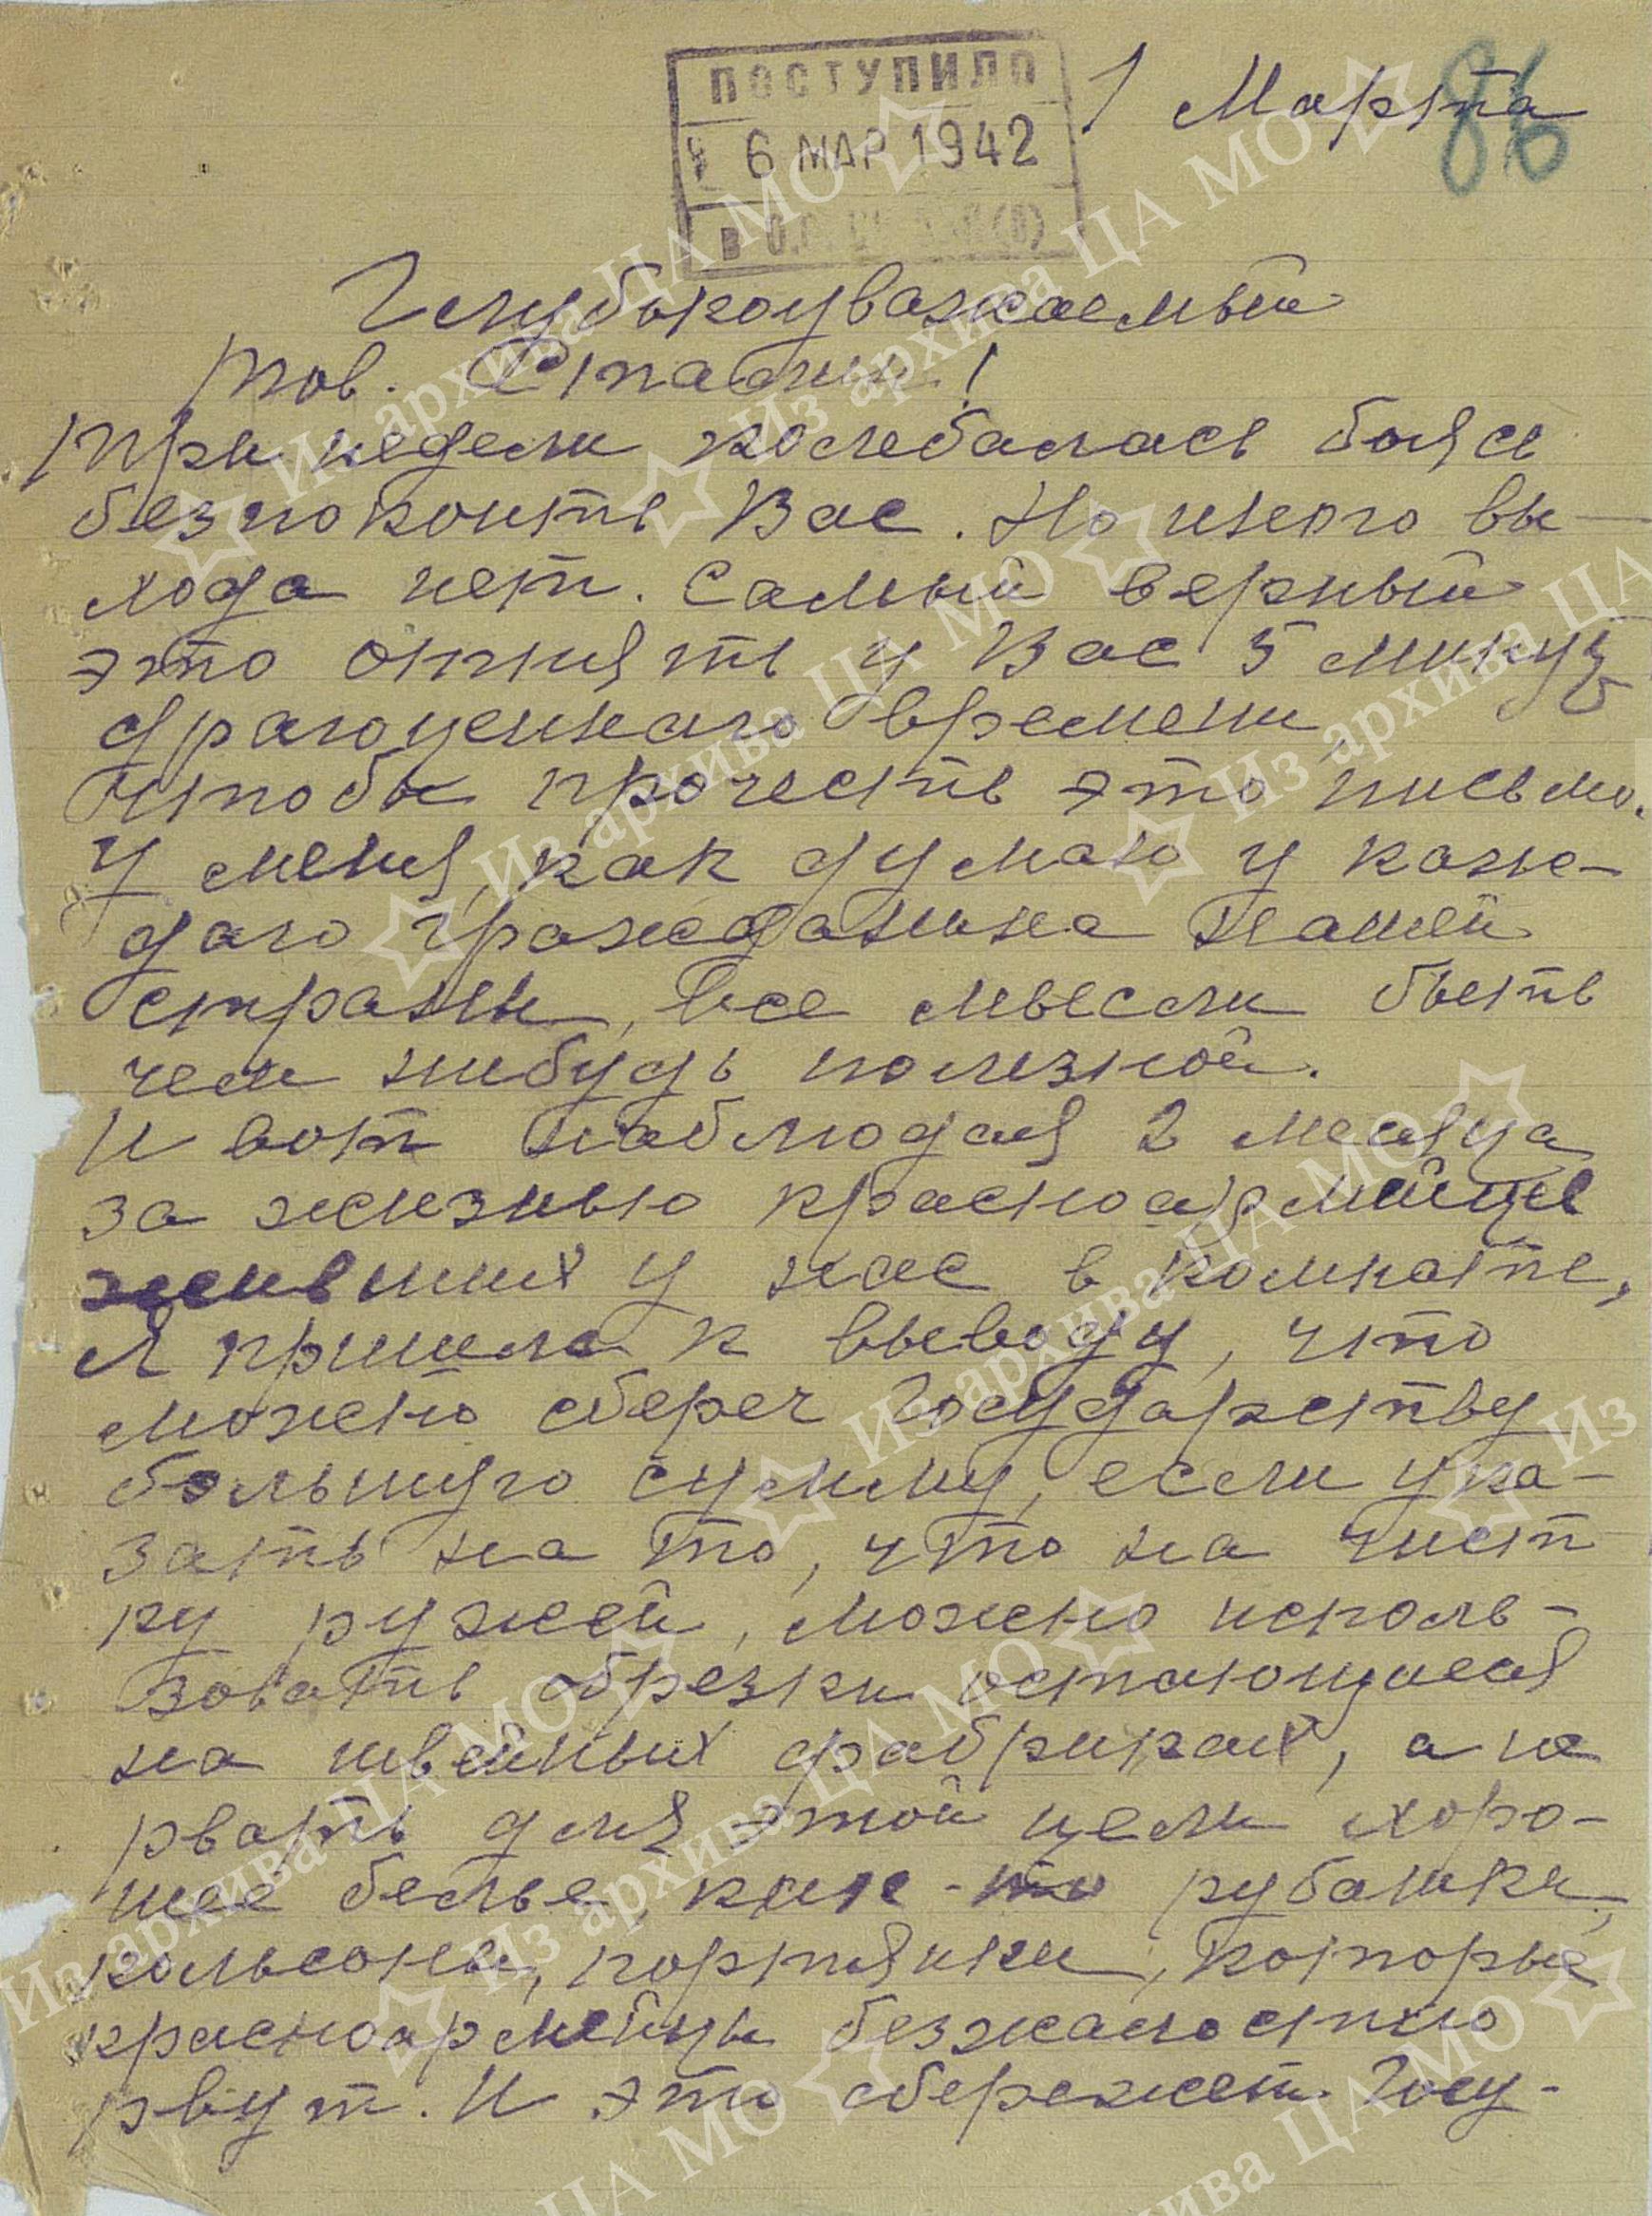 ПОСТУПИЛО
6 МАР 1942
в
1 Марта
86
Глубокоуважаемый
тов. Сталин!
Три недели колебалась боясь
безпокоить Вас. Но иного вы-
хода нет. Самый верный
это отнять у Вас 5 минут
драгоценнаго времени,
чтобы прочесть это письмо.
У меня, как думаю у каж-
даго гражданина нашей
страны, все мысли быть
чем нибудь полезной.
И вот наблюдая 2 месяца
за жизнью красноармейцев
живших у нас в комнате,
я пришла к выводу, что
можно сберечь Государству
большую сумму, если ука-
зать на то, что на чист
ку ружей, можно исполь-
зовать обрезки остающиеся
на швейных фабриках, а не
рвать для этой цели хоро-
шее белье, как-то рубашки,
кальсоны, портянки, которые
красноармейцы безжалостно
рвут. И это сбережет Госу-
Из архива ЦА МО